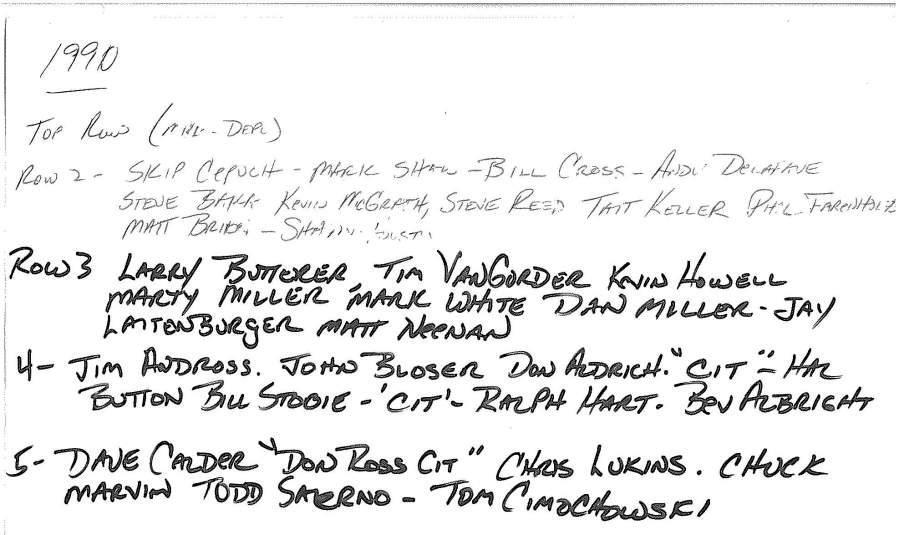 1990
Top Row (
Row 2 - SKIP CEPUCH - MARK SHAW - BILL CROSS - ANDY DELAHAVE
STEVE KEVIN McGRATH, STEVE REED TAIT KELLER PHIL FARENHOLZ
MATT - SHAWN
Row 3 LARRY BUTTERER, TIM VANGORDER KEVIN HOWELL
MARTY MILLER MARK WHITE DAN MILLER - JAY
LATTENBURGER MATT NEENAN
4- JIM ANDROSS. JOHN BLOSER DON ALDRICH. "CIT" - HAL
BUTTON BILL STODIE - 'CIT' - RALPH HART. BEV ALBRIGHT
5- DAVE CALDER "DON ROSS CIT" CHRIS LUKINS. CHUCK
MARVIN TODD SALERNO - TOM CIMOCHOWSKI